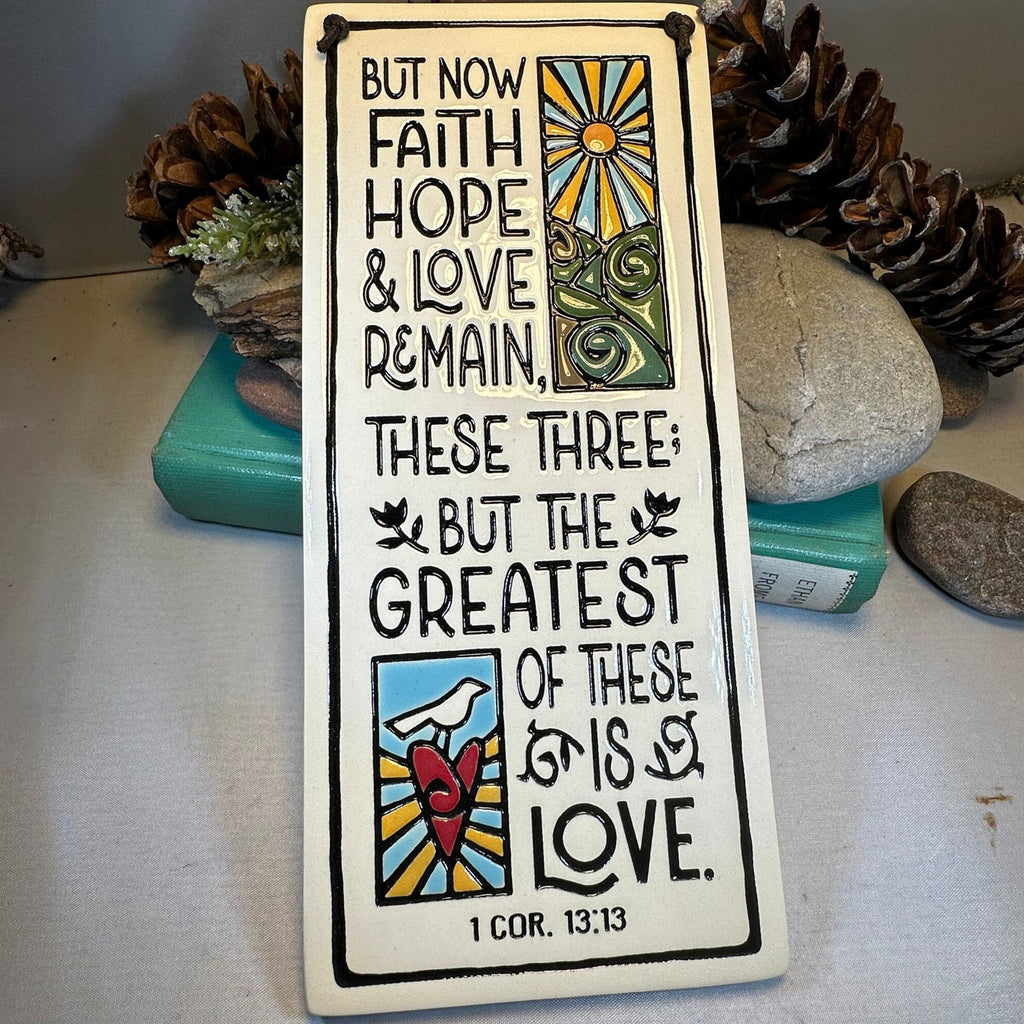 BUT NOW
FAITH
HOPE
& LOVE
REMAIN,
THESE THREE;
BUT THE
GREATEST
OF THESE
IS
LOVE.
1 COR. 13:13
ETHAN
FROM